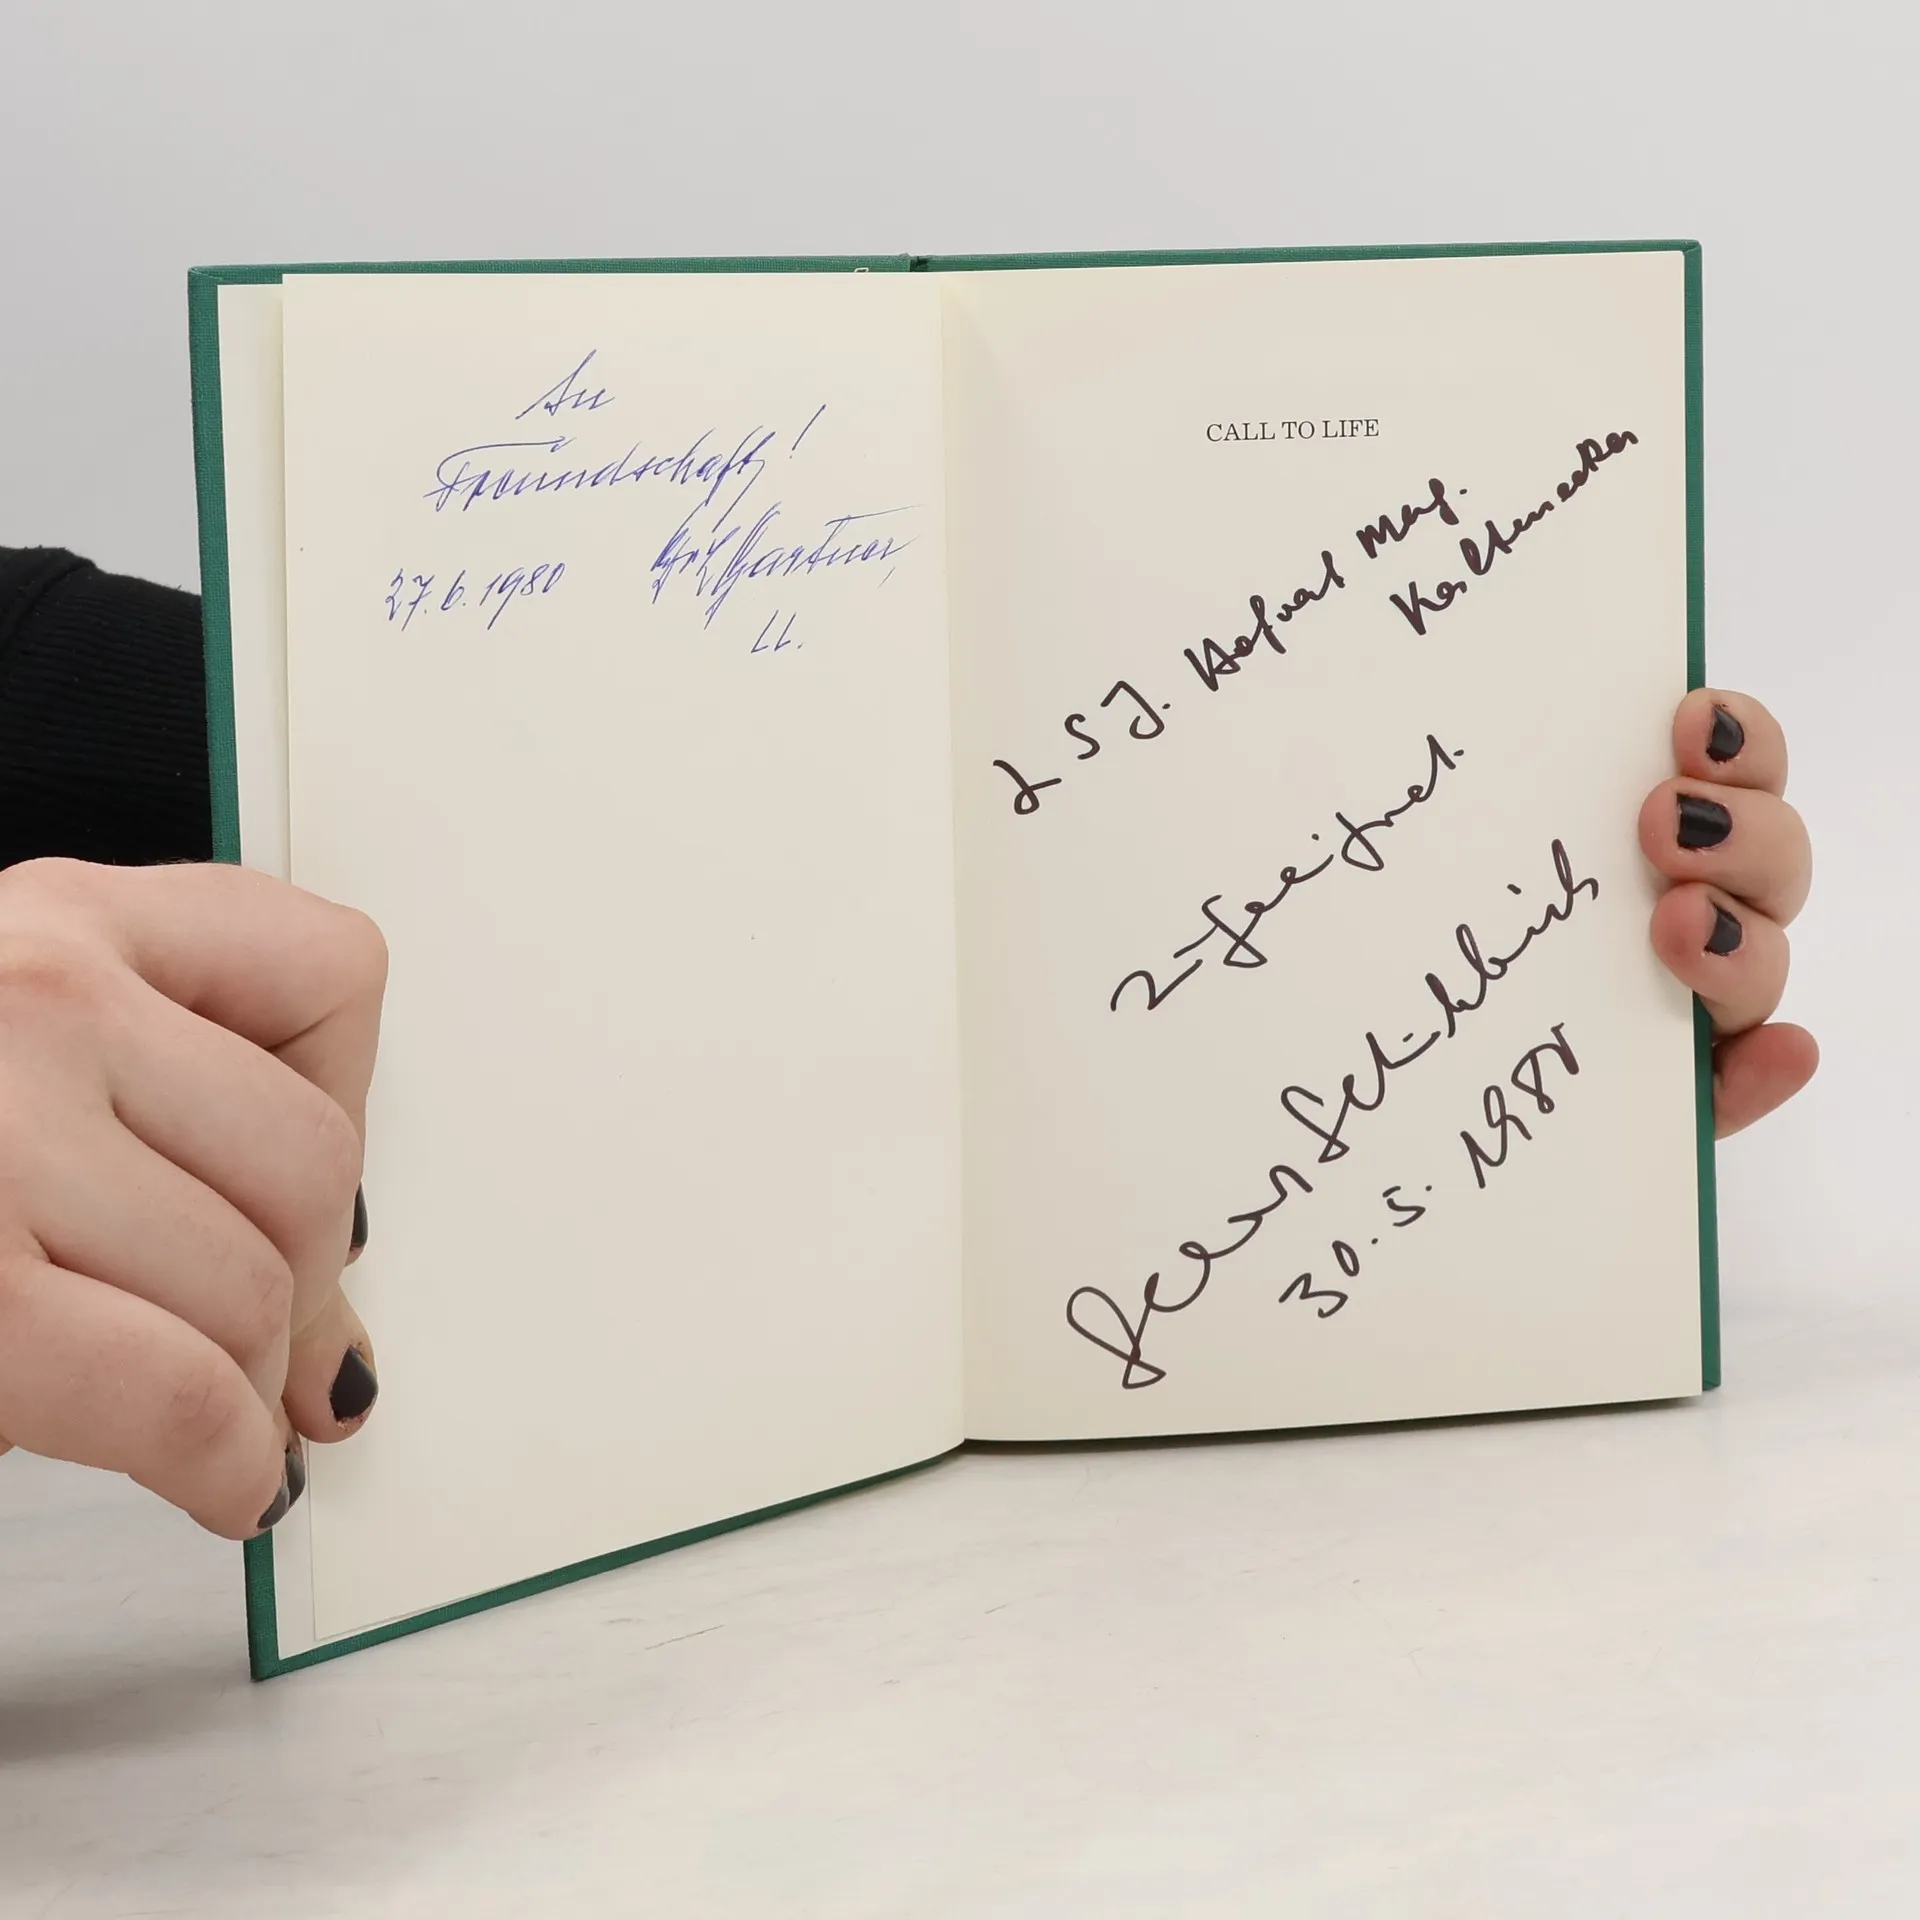 In
Freundschaft!
27.6.1980
Gartner,
LL.
CALL TO LIFE
LSI. Hofrat Mag.
Kaltenecker
zugeeignet.
30.5.198